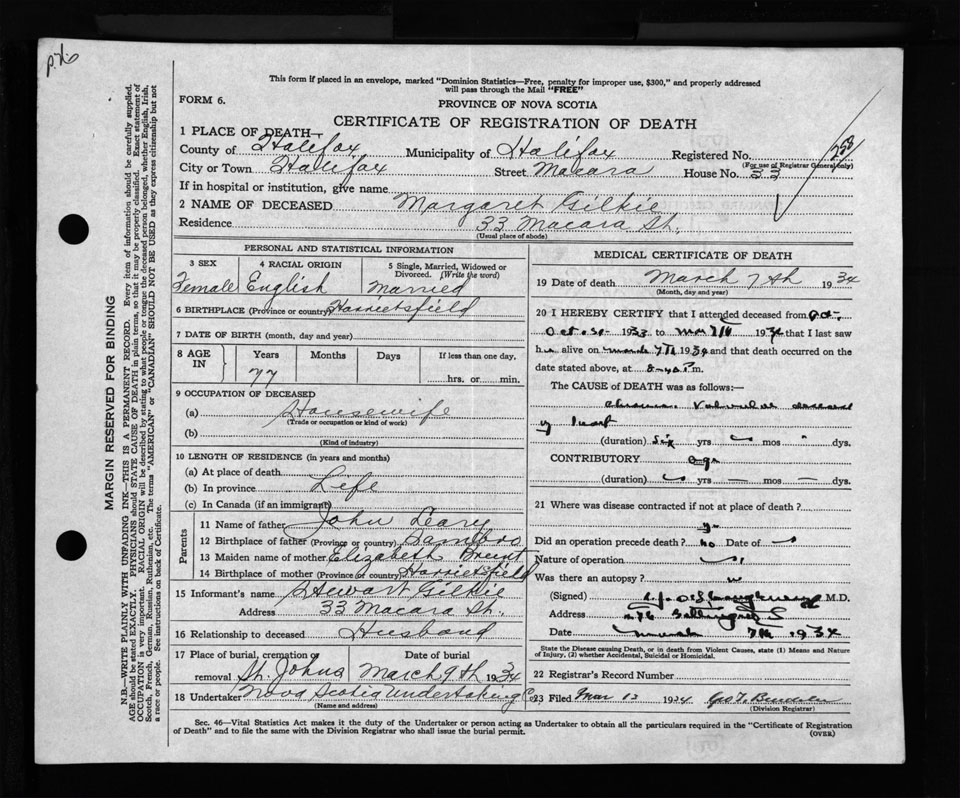 This form if placed in an envelope, marked "Dominion Statistics—Free, penalty for improper use, $300," and properly addressed
will pass through the Mail "FREE"
FORM 6.
PROVINCE OF NOVA SCOTIA
CERTIFICATE OF REGISTRATION OF DEATH
1 PLACE OF DEATH—
County of Halifax Municipality of Halifax Registered No.
(For use of Registrar General only)
City or Town Halifax Street Macara House No. 33
If in hospital or institution, give name
2 NAME OF DECEASED Margaret Gilkie
Residence 33 Macara St.
(Usual place of abode)
PERSONAL AND STATISTICAL INFORMATION
3 SEX 4 RACIAL ORIGIN 5 Single, Married, Widowed or Divorced. (Write the word)
Female English Married
6 BIRTHPLACE (Province or country) Harrietsfield
7 DATE OF BIRTH (month, day and year)
8 AGE IN Years Months Days If less than one day,
77 hrs. or min.
9 OCCUPATION OF DECEASED
(a) Housewife
(Trade or occupation or kind of work)
(b)
(Kind of industry)
10 LENGTH OF RESIDENCE (in years and months)
(a) At place of death
(b) In province Life
(c) In Canada (if an immigrant)
Parents
11 Name of father John Leary
12 Birthplace of father (Province or country) Sambro
13 Maiden name of mother Elizabeth
14 Birthplace of mother (Province or country) Harrietsfield
15 Informant's name Stewart Gilkie
Address 33 Macara St.
16 Relationship to deceased Husband
17 Place of burial, cremation or removal Date of burial
St. Johns March 9th 1934
18 Undertaker Nova Scotia Undertaking Co
(Name and address)
MEDICAL CERTIFICATE OF DEATH
19 Date of death March 7th 1934
(Month, day and year)
20 I HEREBY CERTIFY that I attended deceased from
Oct. 31 1933 to Mar 7th 1934 that I last saw
her alive on March 7th 1934 and that death occurred on the
date stated above, at m.
The CAUSE of DEATH was as follows:—
Chronic Valvular disease
of heart
(duration) Six yrs mos dys.
CONTRIBUTORY age
(duration) yrs — mos — dys.
21 Where was disease contracted if not at place of death?
Did an operation precede death? no Date of
Nature of operation
Was there an autopsy?
(Signed) M.D.
Address
Date March 7th 1934
State the Disease causing Death, or in death from Violent Causes, state (1) Means and Nature
of Injury, (2) whether Accidental, Suicidal or Homicidal.
22 Registrar's Record Number
23 Filed Mar 13 1934 Geo T.
(Division Registrar)
Sec. 46—Vital Statistics Act makes it the duty of the Undertaker or person acting as Undertaker to obtain all the particulars required in the "Certificate of Registration
of Death" and to file the same with the Division Registrar who shall issue the burial permit.
(OVER)
MARGIN RESERVED FOR BINDING
N.B.—WRITE PLAINLY WITH UNFADING INK—THIS IS A PERMANENT RECORD. Every item of information should be carefully supplied.
AGE should be stated EXACTLY. PHYSICIANS should STATE CAUSE OF DEATH in plain terms, so that it may be properly classified. Exact statement of
OCCUPATION is very important. RACIAL ORIGIN will be described by stating to what people or tongue the deceased person belonged, whether English, Irish,
Scotch, French, German, Russian, Ruthenian, etc. The terms "AMERICAN" or "CANADIAN" SHOULD NOT BE USED as they express citizenship but not
a race or people. See instructions on back of Certificate.